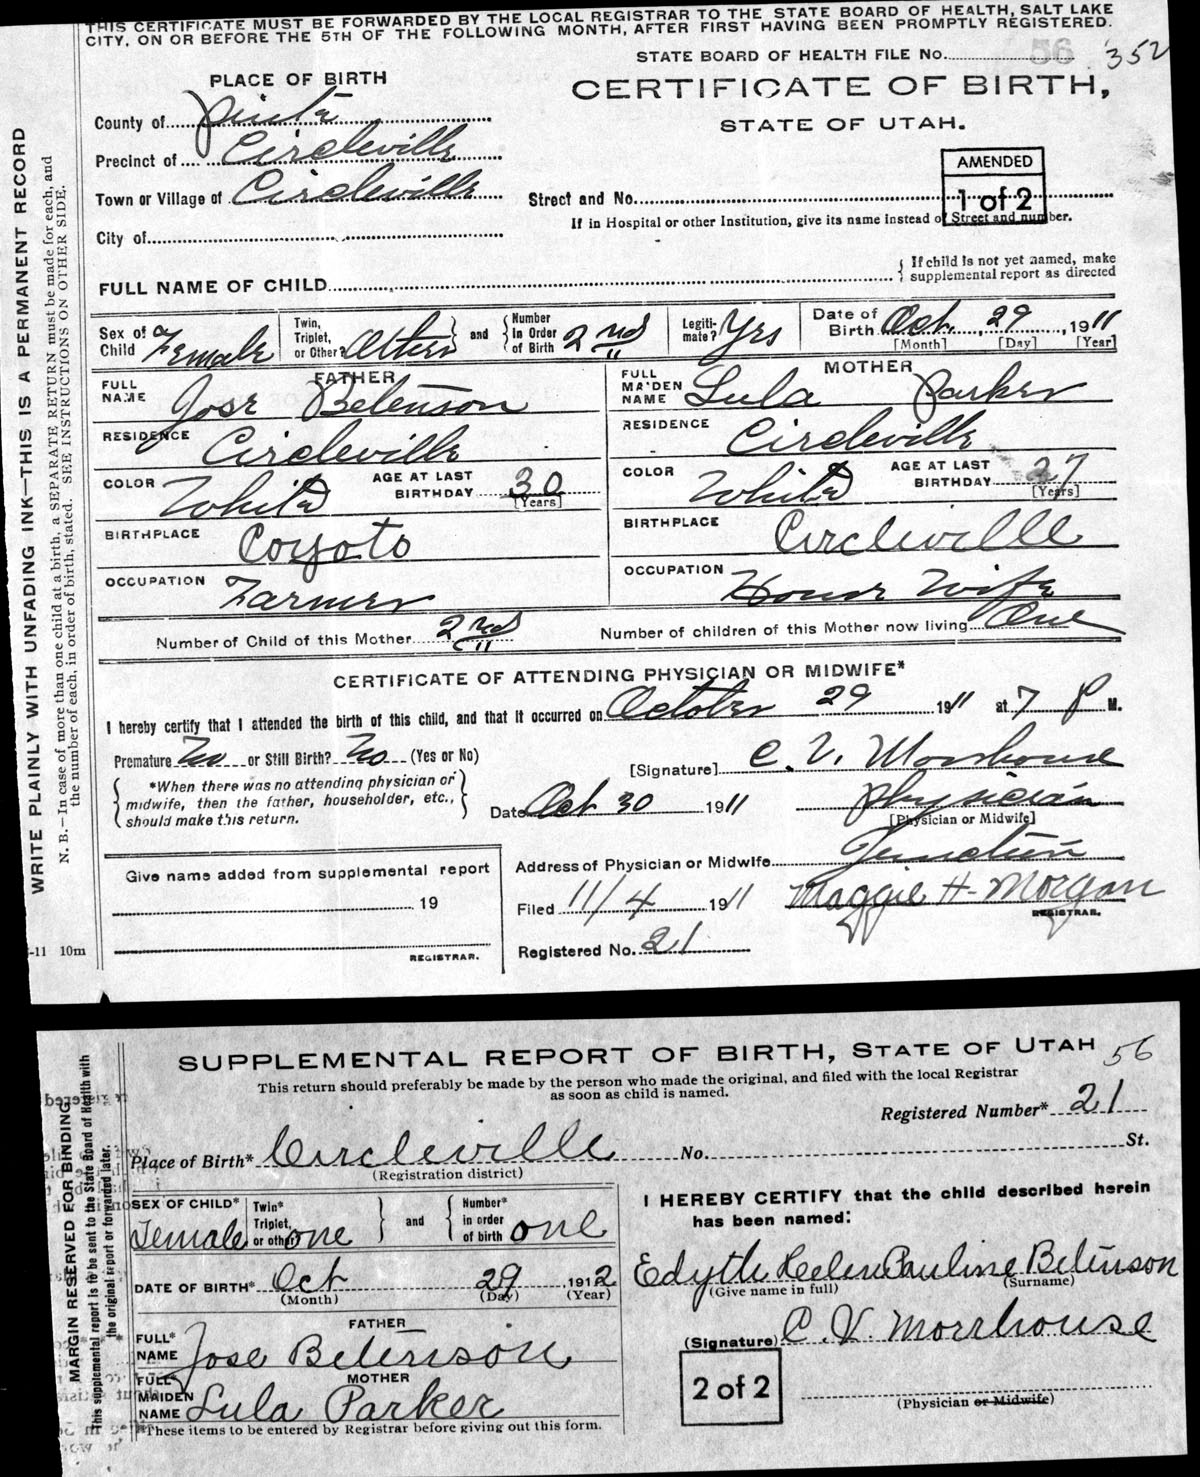 THIS CERTIFICATE MUST BE FORWARDED BY THE LOCAL REGISTRAR TO THE STATE BOARD OF HEALTH, SALT LAKE
CITY, ON OR BEFORE THE 5TH OF THE FOLLOWING MONTH, AFTER FIRST HAVING BEEN PROMPTLY REGISTERED.
STATE BOARD OF HEALTH FILE No. 56 352
PLACE OF BIRTH
CERTIFICATE OF BIRTH,
STATE OF UTAH.
County of Piute
Precinct of Circleville
Town or Village of Circleville
City of
AMENDED
1 of 2
Street and No.
If in Hospital or other Institution, give its name instead of Street and number.
FULL NAME OF CHILD
If child is not yet named, make
supplemental report as directed
Sex of Child Female
Twin, Triplet, or Other? Other and Number in Order of Birth 2nd
Legitimate? Yes
Date of Birth Oct. 29, 1911
[Month] [Day] [Year]
FATHER
FULL NAME Jose Betenson
RESIDENCE Circleville
COLOR White AGE AT LAST BIRTHDAY 30
[Years]
BIRTHPLACE Coyoto
OCCUPATION Farmer
MOTHER
FULL MAIDEN NAME Lula Parker
RESIDENCE Circleville
COLOR White AGE AT LAST BIRTHDAY 27
[Years]
BIRTHPLACE Circleville
OCCUPATION House Wife
Number of Child of this Mother 2nd
Number of children of this Mother now living One
CERTIFICATE OF ATTENDING PHYSICIAN OR MIDWIFE*
I hereby certify that I attended the birth of this child, and that it occurred on October 29 1911 at 7 P M.
Premature No or Still Birth? No (Yes or No)
[Signature] C. V. Morrhouse
*When there was no attending physician or
midwife, then the father, householder, etc.,
should make this return.
Date Oct 30 1911
Physician
[Physician or Midwife]
Address of Physician or Midwife Junction
Give name added from supplemental report
19
REGISTRAR.
Filed 11/4 1911 Maggie H. Morgan
REGISTRAR.
Registered No. 21
-11 10m
WRITE PLAINLY WITH UNFADING INK—THIS IS A PERMANENT RECORD
N. B.—In case of more than one child at a birth, a SEPARATE RETURN must be made for each, and
the number of each, in order of birth, stated. SEE INSTRUCTIONS ON OTHER SIDE.
SUPPLEMENTAL REPORT OF BIRTH, STATE OF UTAH 56
This return should preferably be made by the person who made the original, and filed with the local Registrar
as soon as child is named.
Registered Number* 21
Place of Birth* Circleville No. St.
(Registration district)
SEX OF CHILD* Female
Twin* Triplet, or other one and Number* in order of birth one
DATE OF BIRTH* Oct 29, 1912
(Month) (Day) (Year)
FATHER
FULL* NAME Jose Betenson
MOTHER
FULL* MAIDEN NAME Lula Parker
*These items to be entered by Registrar before giving out this form.
I HEREBY CERTIFY that the child described herein
has been named:
Edyth Helen Pauline Betenson
(Give name in full) (Surname)
(Signature) C. V. Morrhouse
2 of 2
(Physician or Midwife)
MARGIN RESERVED FOR BINDING
This supplemental report is to be sent to the State Board of Health with
the original report or forwarded later.